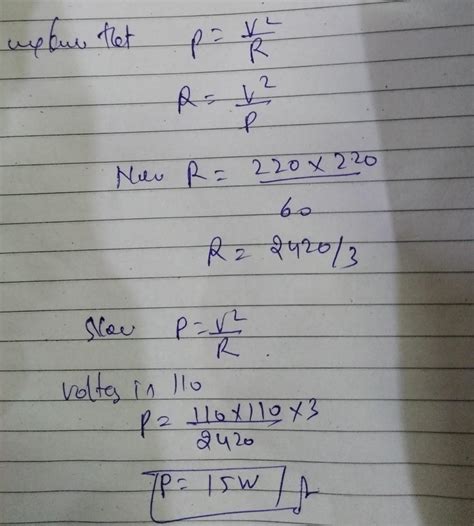 we know that P = V²/R
R = V²/P
Now R = 220 × 220/60
R = 2420/3
Now P = V²/R
voltes in 110
P = 110×110×3/2420
P = 15W